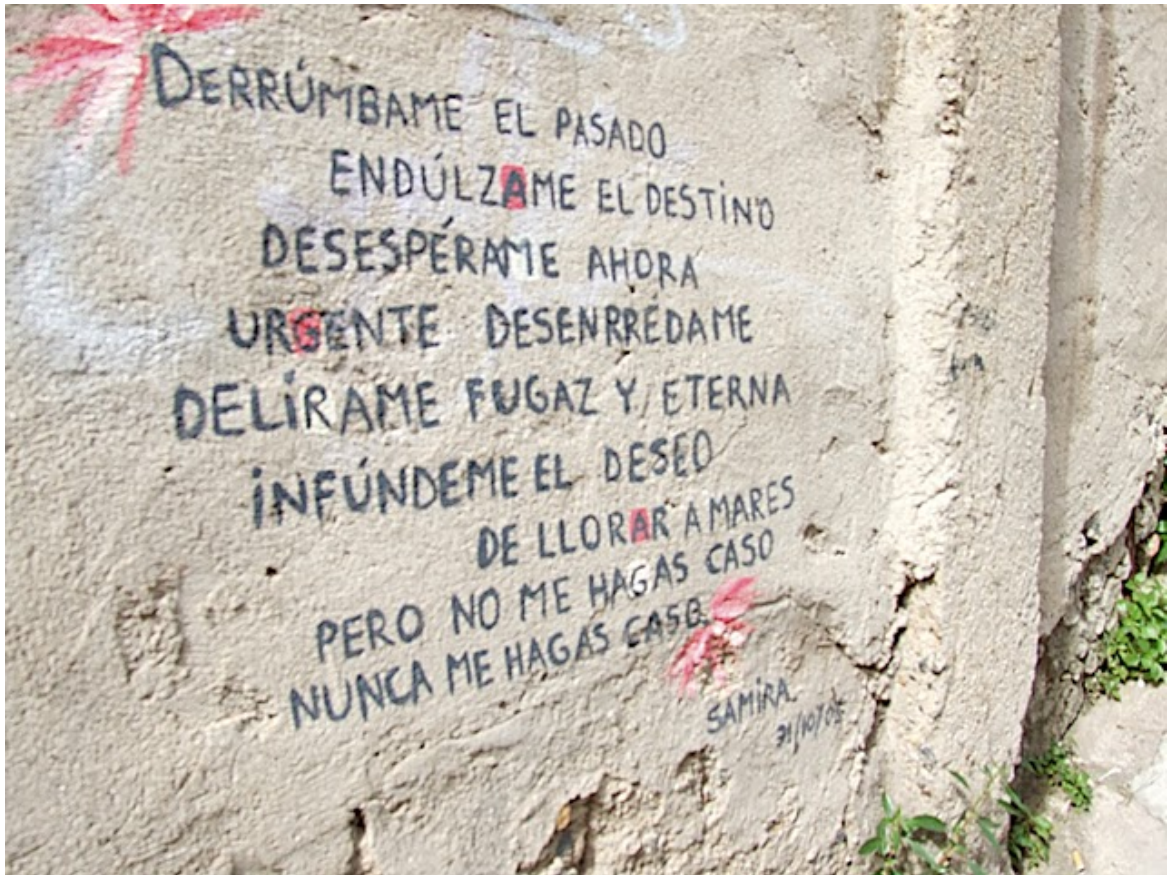 DERRÚMBAME EL PASADO
ENDÚLZAME EL DESTINO
DESESPÉRAME AHORA
URGENTE DESENRRÉDAME
DELÍRAME FUGAZ Y ETERNA
INFÚNDEME EL DESEO
DE LLORAR A MARES
PERO NO ME HAGAS CASO
NUNCA ME HAGAS CASO.
SAMIRA